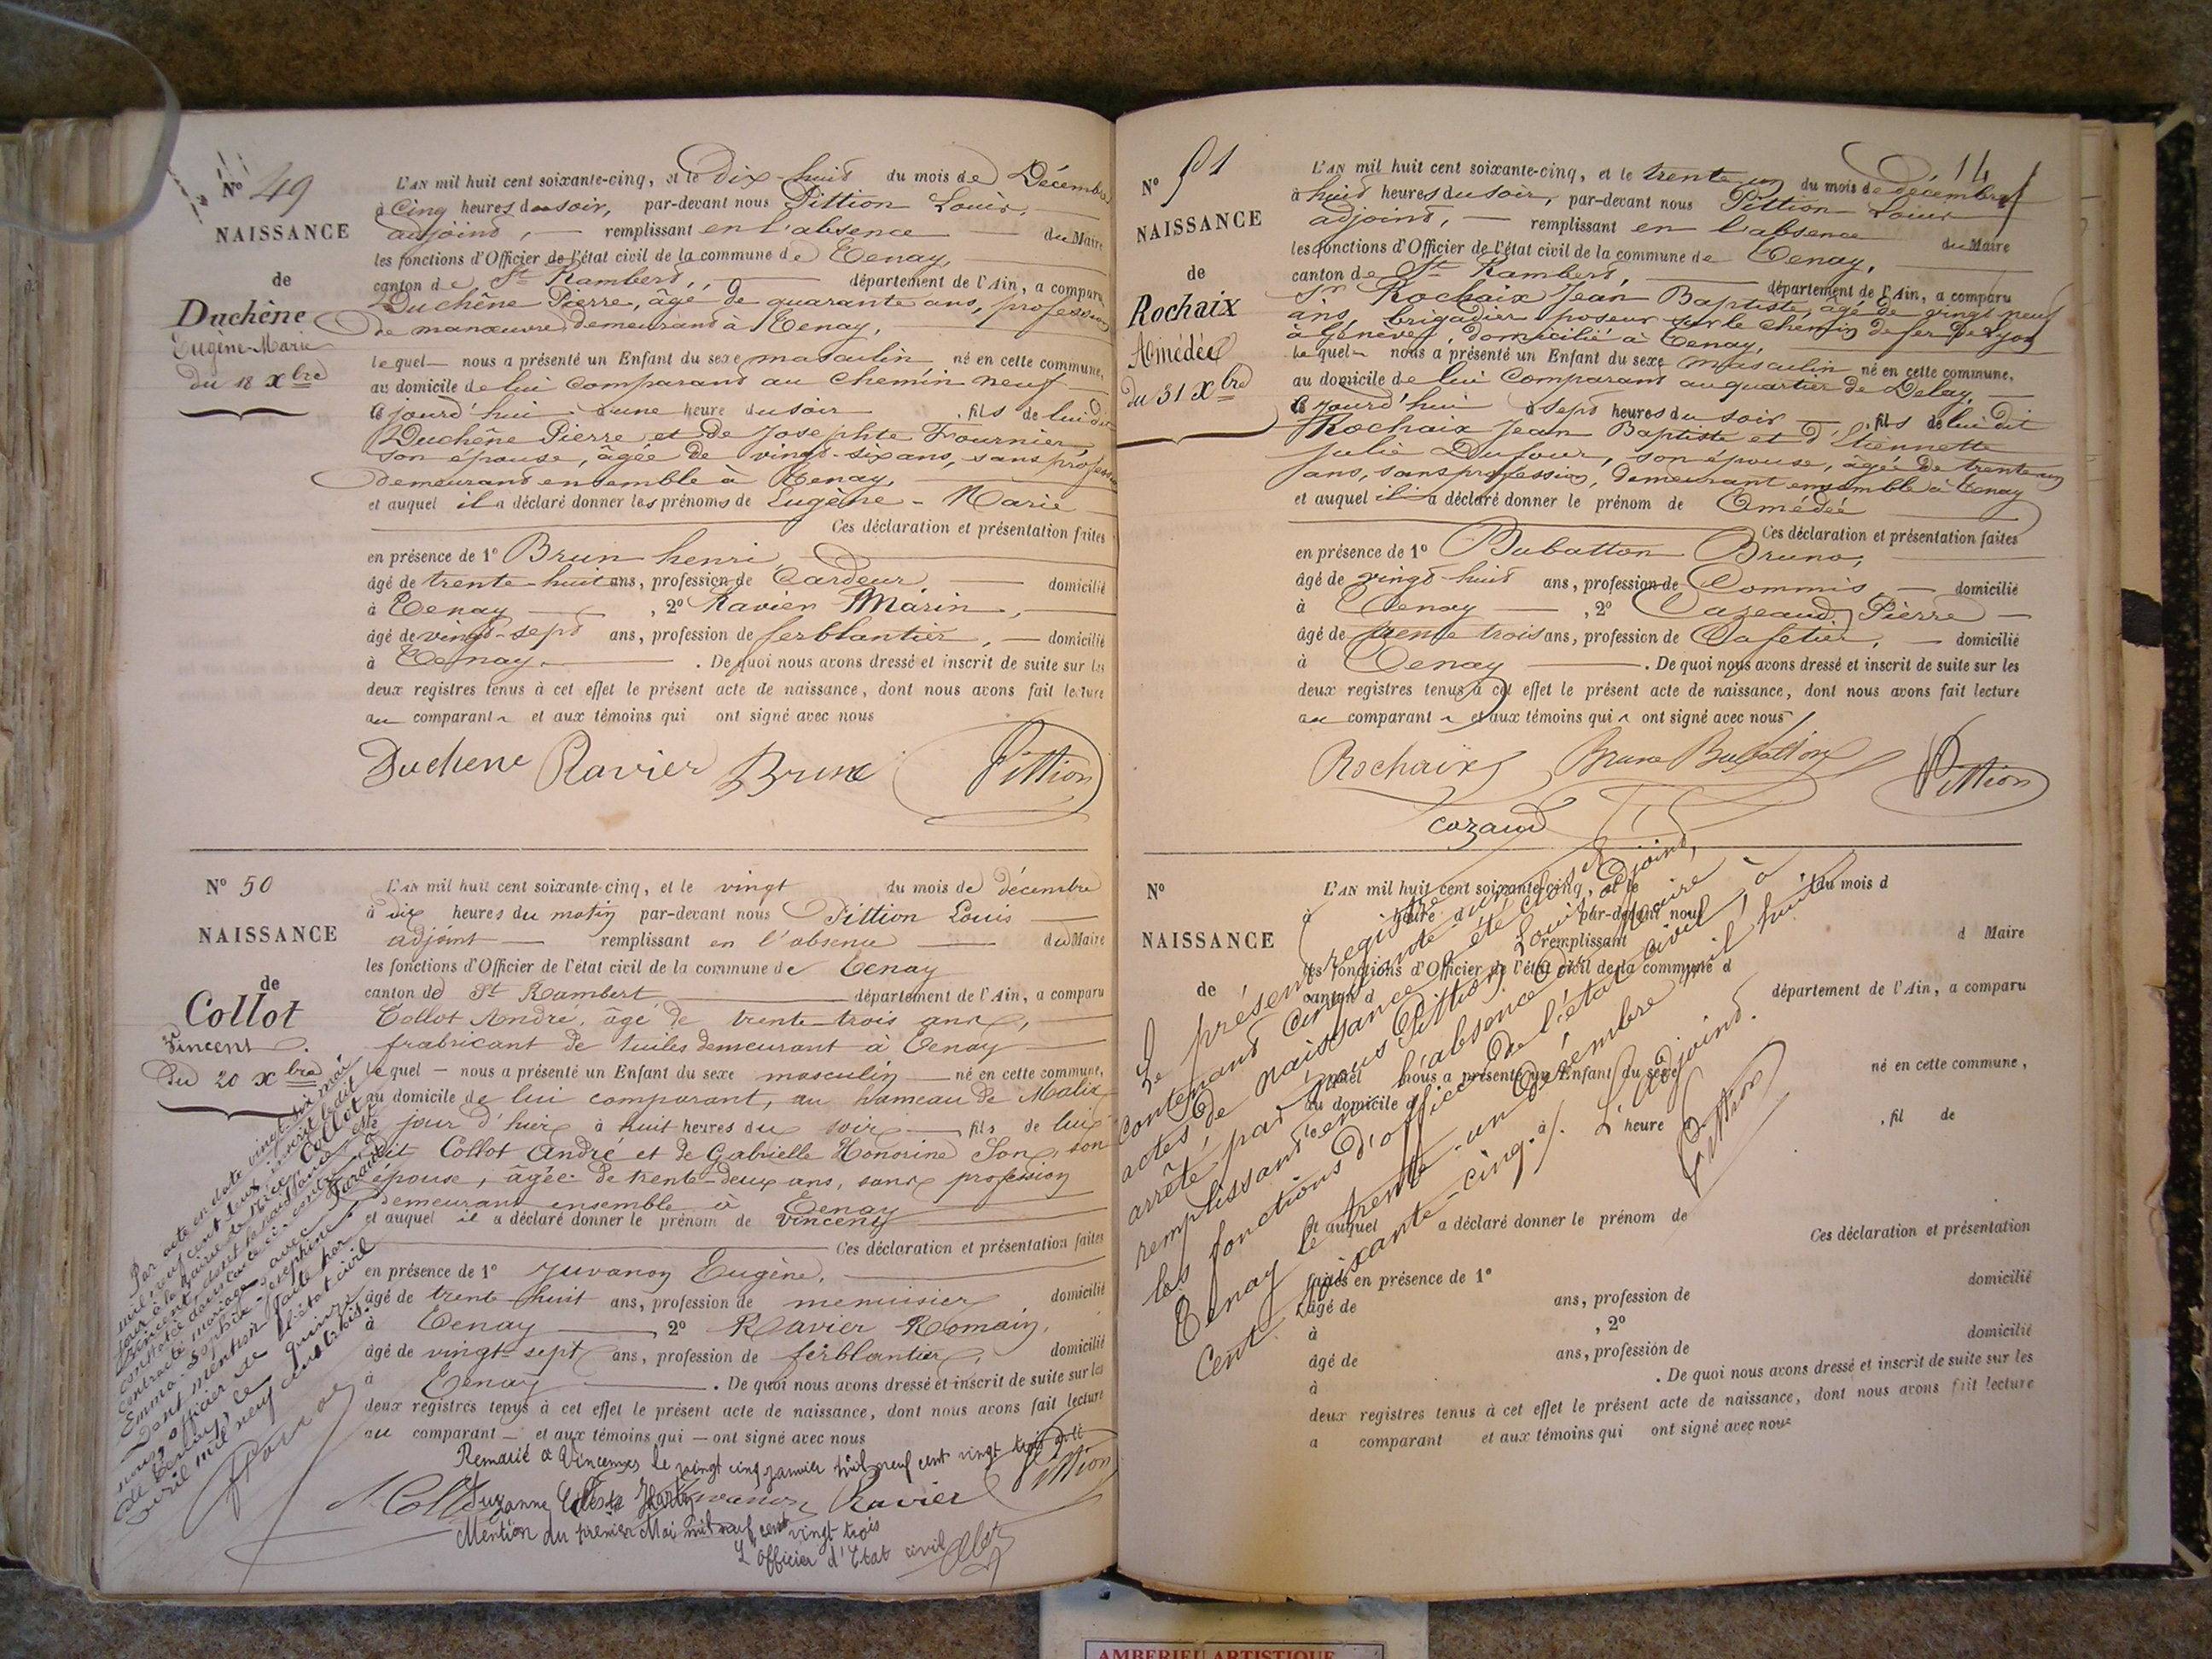 N° 49
NAISSANCE
de
Duchêne
Eugène-Marie
du 18 Xbre
L'AN mil huit cent soixante-cinq, et le Dix-huit du mois de Décembre
à Cinq heures du soir, par-devant nous Pittion Louis,
adjoint, remplissant en l'absence du Maire
les fonctions d'Officier de l'état civil de la commune de Tenay,
canton de St Rambert, département de l'Ain, a comparu
Duchêne Pierre, âgé de quarante ans, profession
de manœuvre demeurant à Tenay,
lequel nous a présenté un Enfant du sexe masculin né en cette commune,
au domicile de lui Comparant au Chemin neuf
ce jourd'hui à une heure du soir, fils de lui dit
Duchêne Pierre et de Josephte Fournier
son épouse, âgée de vingt-six ans, sans profession
demeurant ensemble à Tenay,
et auquel il a déclaré donner les prénoms de Eugène-Marie
Ces déclaration et présentation faites
en présence de 1° Brun henri,
âgé de trente-huit ans, profession de Cardeur, domicilié
à Tenay, 2° Ravier Marin,
âgé de vingt-sept ans, profession de ferblantier, domicilié
à Tenay. De quoi nous avons dressé et inscrit de suite sur les
deux registres tenus à cet effet le présent acte de naissance, dont nous avons fait lecture
au comparant et aux témoins qui ont signé avec nous
Duchene Ravier Brun Pittion
N° 50
NAISSANCE
de
Collot
Vincent.
Du 20 Xbre
L'AN mil huit cent soixante-cinq, et le vingt du mois de décembre
à dix heures du matin par-devant nous Pittion Louis
adjoint remplissant en l'absence du Maire
les fonctions d'Officier de l'état civil de la commune de Tenay
canton de St Rambert département de l'Ain, a comparu
Collot André, âgé de trente-trois ans,
fabricant de tuiles demeurant à Tenay
lequel nous a présenté un Enfant du sexe masculin né en cette commune,
au domicile de lui comparant, au hameau de Malix
jour d'hier à huit heures du soir fils de lui
dit Collot André et de Gabrielle Honorine Son, son
épouse, âgée de trente-deux ans, sans profession
demeurant ensemble à Tenay
et auquel il a déclaré donner le prénom de Vincent
Ces déclaration et présentation faites
en présence de 1° Juvanon Eugène,
âgé de trente huit ans, profession de menuisier domicilié
à Tenay 2° Ravier Romain,
âgé de vingt-sept ans, profession de ferblantier, domicilié
à Tenay. De quoi nous avons dressé et inscrit de suite sur les
deux registres tenus à cet effet le présent acte de naissance, dont nous avons fait lecture
au comparant et aux témoins qui ont signé avec nous
Juvanon Ravier Pittion
Par acte en date vingt-six mai
mil neuf cent deux, inscrit ledit
jour à la mairie de Nice, Collot
Vincent, dont la naissance est
constatée dans l'acte ci-contre, a
contracté mariage avec
Emma-Sophie-Josephine
Dont mention faite par
nous officier de l'état civil
de Tenay, le quinze
avril mil neuf cent trois.
Remarié à Vincennes le vingt cinq janvier mil neuf cent vingt trois avec
Suzanne
Mention du premier Mai mil neuf cent vingt trois
L'Officier d'Etat civil
14
N° 51
NAISSANCE
de
Rochaix
Amédée
du 31 Xbre
L'AN mil huit cent soixante-cinq, et le trente un du mois de décembre
à huit heures du soir, par-devant nous Pittion Louis
adjoint, remplissant en l'absence du Maire
les fonctions d'Officier de l'état civil de la commune de Tenay,
canton de St Rambert, département de l'Ain, a comparu
Sr Rochaix Jean Baptiste, âgé de vingt neuf
ans, brigadier poseur sur le chemin de fer de Lyon
à Genève, domicilié à Tenay,
lequel nous a présenté un Enfant du sexe masculin né en cette commune,
au domicile de lui Comparant au quartier de Delay,
ce jourd'hui à sept heures du soir, fils de lui dit
Rochaix Jean Baptiste et d'Etiennette
Julie Dufour, son épouse, âgée de trente un
ans, sans profession, demeurant ensemble à Tenay
et auquel il a déclaré donner le prénom de Amédée
Ces déclaration et présentation faites
en présence de 1° Bubatton Bruno,
âgé de vingt huit ans, profession de Commis, domicilié
à Tenay, 2° Cazeaud Pierre
âgé de trente trois ans, profession de Cafetier, domicilié
à Tenay. De quoi nous avons dressé et inscrit de suite sur les
deux registres tenus à cet effet le présent acte de naissance, dont nous avons fait lecture
au comparant et aux témoins qui ont signé avec nous
Rochaix Bruno Bubatton Pittion
cazaud
N°
NAISSANCE
de
L'AN mil huit cent soixante-cinq, et le du mois d
à heure d par-devant nous
remplissant d Maire
les fonctions d'Officier de l'état civil de la commune d
canton d département de l'Ain, a comparu
lequel nous a présenté un Enfant du sexe né en cette commune,
au domicile d
le à heure, fil de
et auquel a déclaré donner le prénom de
Ces déclaration et présentation
faites en présence de 1°
âgé de ans, profession de domicilié
à, 2°
âgé de ans, profession de domicilié
à. De quoi nous avons dressé et inscrit de suite sur les
deux registres tenus à cet effet le présent acte de naissance, dont nous avons fait lecture
a comparant et aux témoins qui ont signé avec nous
Le présent registre
contenant cinquante-un
actes de naissance a été clos et
arrêté par nous Pittion Louis, Adjoint,
remplissant en l'absence du Maire
les fonctions d'officier de l'état civil, à
Tenay le trente-un décembre mil huit
cent soixante-cinq.
L'adjoint.
Pittion
AMBERIEU ARTISTIQUE